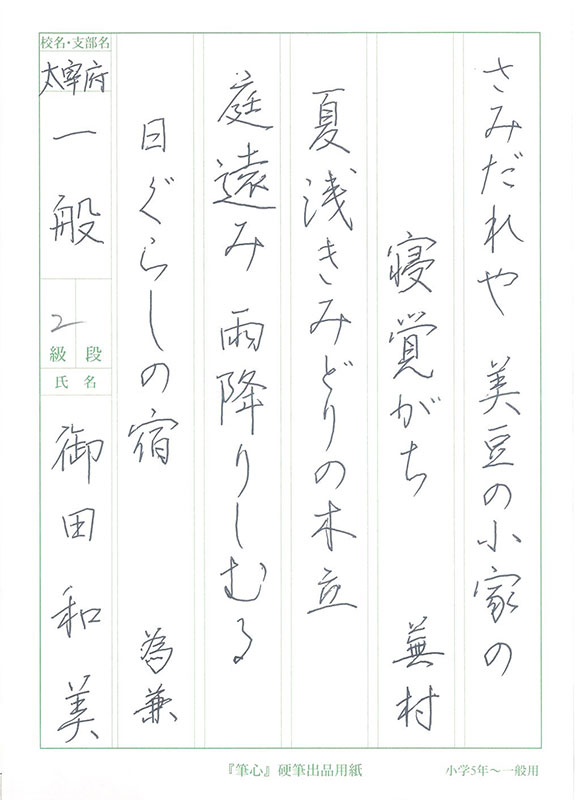 さみだれや 美豆の小家の
寝覚がち 蕪村
夏浅きみどりの木立
庭遠み 雨降りしむる
日ぐらしの宿 為兼
校名・支部名
太宰府
一般
2
級 段
氏 名
御田和美
『筆心』硬筆出品用紙
小学5年〜一般用